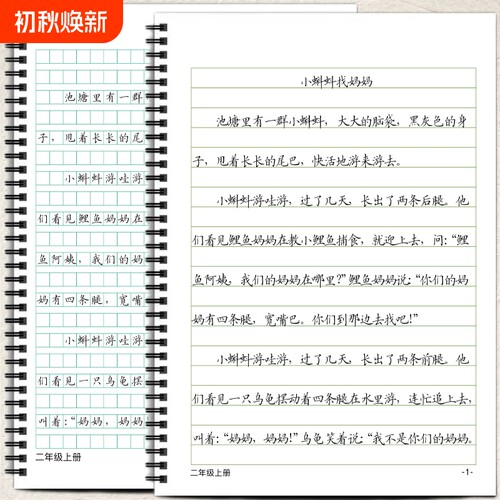 初秋焕新
池塘里有一群
子，甩着长长的尾
小蝌蚪游哇游
们看见鲤鱼妈妈在
鱼阿姨，我们的妈
妈有四条腿，宽嘴
小蝌蚪游哇游
们看见一只乌龟摆
叫着：“妈妈，妈妈
二年级上册
小蝌蚪找妈妈
池塘里有一群小蝌蚪，大大的脑袋，黑灰色的身
子，甩着长长的尾巴，快活地游来游去。
小蝌蚪游哇游，过了几天，长出了两条后腿。他
们看见鲤鱼妈妈在教小鲤鱼捕食，就迎上去，问：“鲤
鱼阿姨，我们的妈妈在哪里？”鲤鱼妈妈说：“你们的妈
妈有四条腿，宽嘴巴。你们到那边去找吧！”
小蝌蚪游哇游，过了几天，长出了两条前腿。他
们看见一只乌龟摆动着四条腿在水里游，连忙追上去，
叫着：“妈妈，妈妈！”乌龟笑着说：“我不是你们的妈妈。
二年级上册
-1-